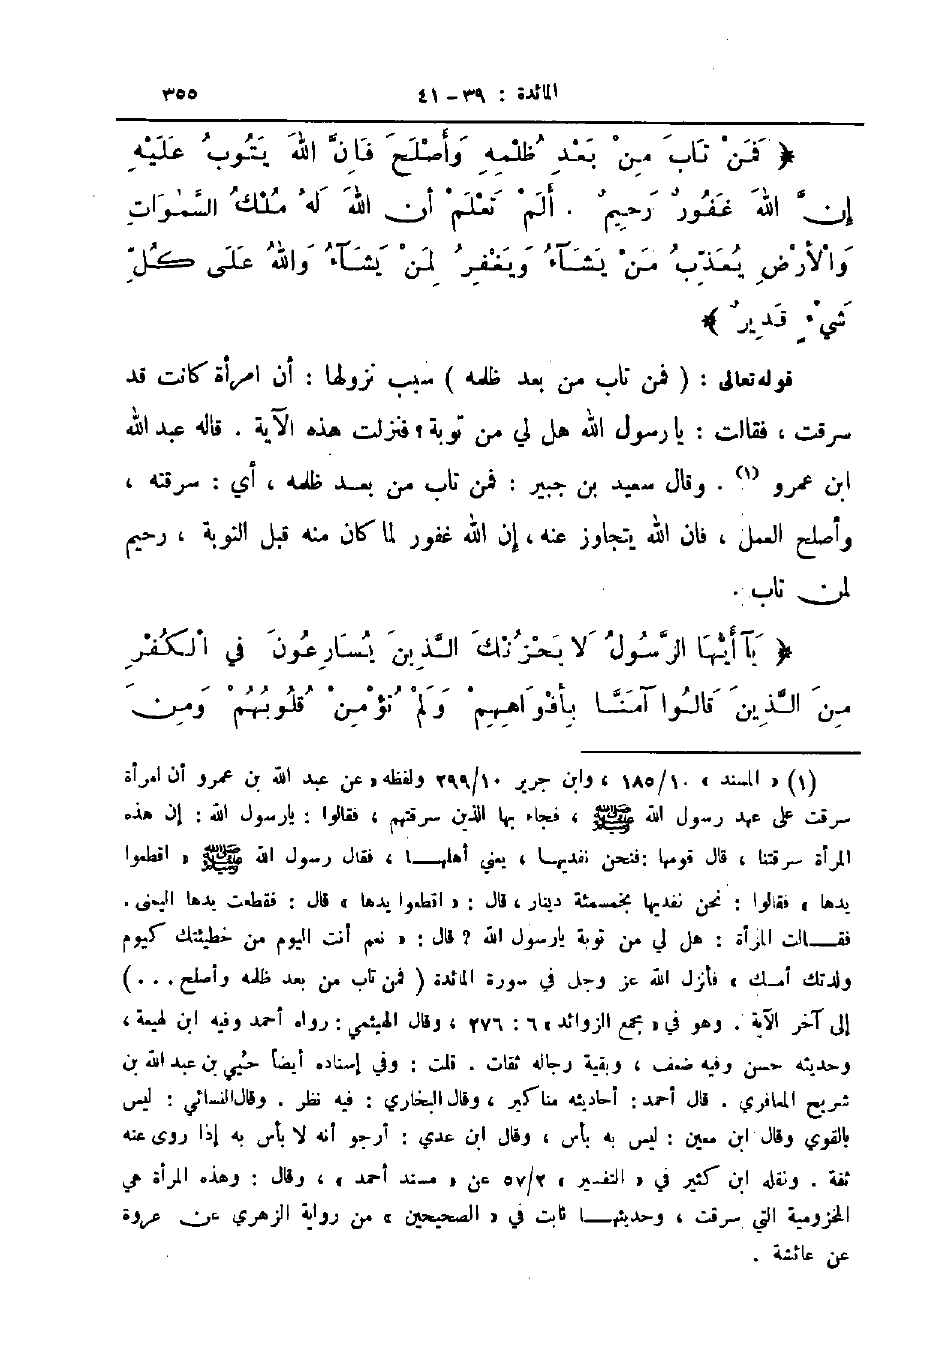 المائدة : ٣٩ - ٤١ ٣٥٥
﴿ فَمَنْ تَابَ مِنْ بَعْدِ ظُلْمِهِ وَأَصْلَحَ فَإِنَّ اللهَ يَتُوبُ عَلَيْهِ
إِنَّ اللهَ غَفُورٌ رَحِيمٌ . أَلَمْ تَعْلَمْ أَنَّ اللهَ لَهُ مُلْكُ السَّمٰوَاتِ
وَالْأَرْضِ يُعَذِّبُ مَنْ يَشَآءُ وَيَغْفِرُ لِمَنْ يَشَآءُ وَاللهُ عَلَى كُلِّ
شَيْءٍ قَدِيرٌ ﴾
قوله تعالى : ( فمن تاب من بعد ظلمه ) سبب نزولها : أن امرأة كانت قد
سرقت ، فقالت : يا رسول الله هل لي من توبة ؟ فنزلت هذه الآية . قاله عبد الله
ابن عمرو (١) . وقال سعيد بن جبير : فمن تاب من بعد ظلمه ، أي : سرقته ،
وأصلح العمل ، فان الله يتجاوز عنه ، إن الله غفور لما كان منه قبل التوبة ، رحيم
لمن تاب .
﴿ يَآ أَيُّهَا الرَّسُولُ لَا يَحْزُنْكَ الَّذِينَ يُسَارِعُونَ فِي الْكُفْرِ
مِنَ الَّذِينَ قَالُوا آمَنَّا بِأَفْوَاهِهِمْ وَلَمْ تُؤْمِنْ قُلُوبُهُمْ وَمِنَ
(١) « المسند » ١٨٥/١٠ ، وابن جرير ٢٩٩/١٠ ولفظه « عن عبد الله بن عمرو أن امرأة
سرقت على عهد رسول الله ﷺ ، فجاء بها الذين سرقتهم ، فقالوا : يا رسول الله : إن هذه
المرأة سرقتنا ، قال قومها : فنحن نفديها ، يعني أهلها ، فقال رسول الله ﷺ « اقطعوا
يدها » فقالوا : نحن نفديها بخمسمئة دينار ، قال : « اقطعوا يدها » قال : فقطعت يدها اليمنى .
فقالت المرأة : هل لي من توبة يا رسول الله ؟ قال : « نعم أنت اليوم من خطيئتك كيوم
ولدتك أمك » فأنزل الله عز وجل في سورة المائدة ( فمن تاب من بعد ظلمه وأصلح . . . )
إلى آخر الآية . وهو في « مجمع الزوائد » ٦ : ٢٧٦ ، وقال الهيثمي : رواه أحمد وفيه ابن لهيعة ،
وحديثه حسن وفيه ضعف ، وبقية رجاله ثقات . قلت : وفي إسناده أيضاً حُيي بن عبد الله بن
شريح المعافري . قال أحمد : أحاديثه مناكير ، وقال البخاري : فيه نظر . وقال النسائي : ليس
بالقوي وقال ابن معين : ليس به بأس ، وقال ابن عدي : أرجو أنه لا بأس به إذا روى عنه
ثقة . ونقله ابن كثير في « التفسير » ٥٧/٢ عن « مسند أحمد » ، وقال : وهذه المرأة هي
المخزومية التي سرقت ، وحديثها ثابت في « الصحيحين » من رواية الزهري عن عروة
عن عائشة .